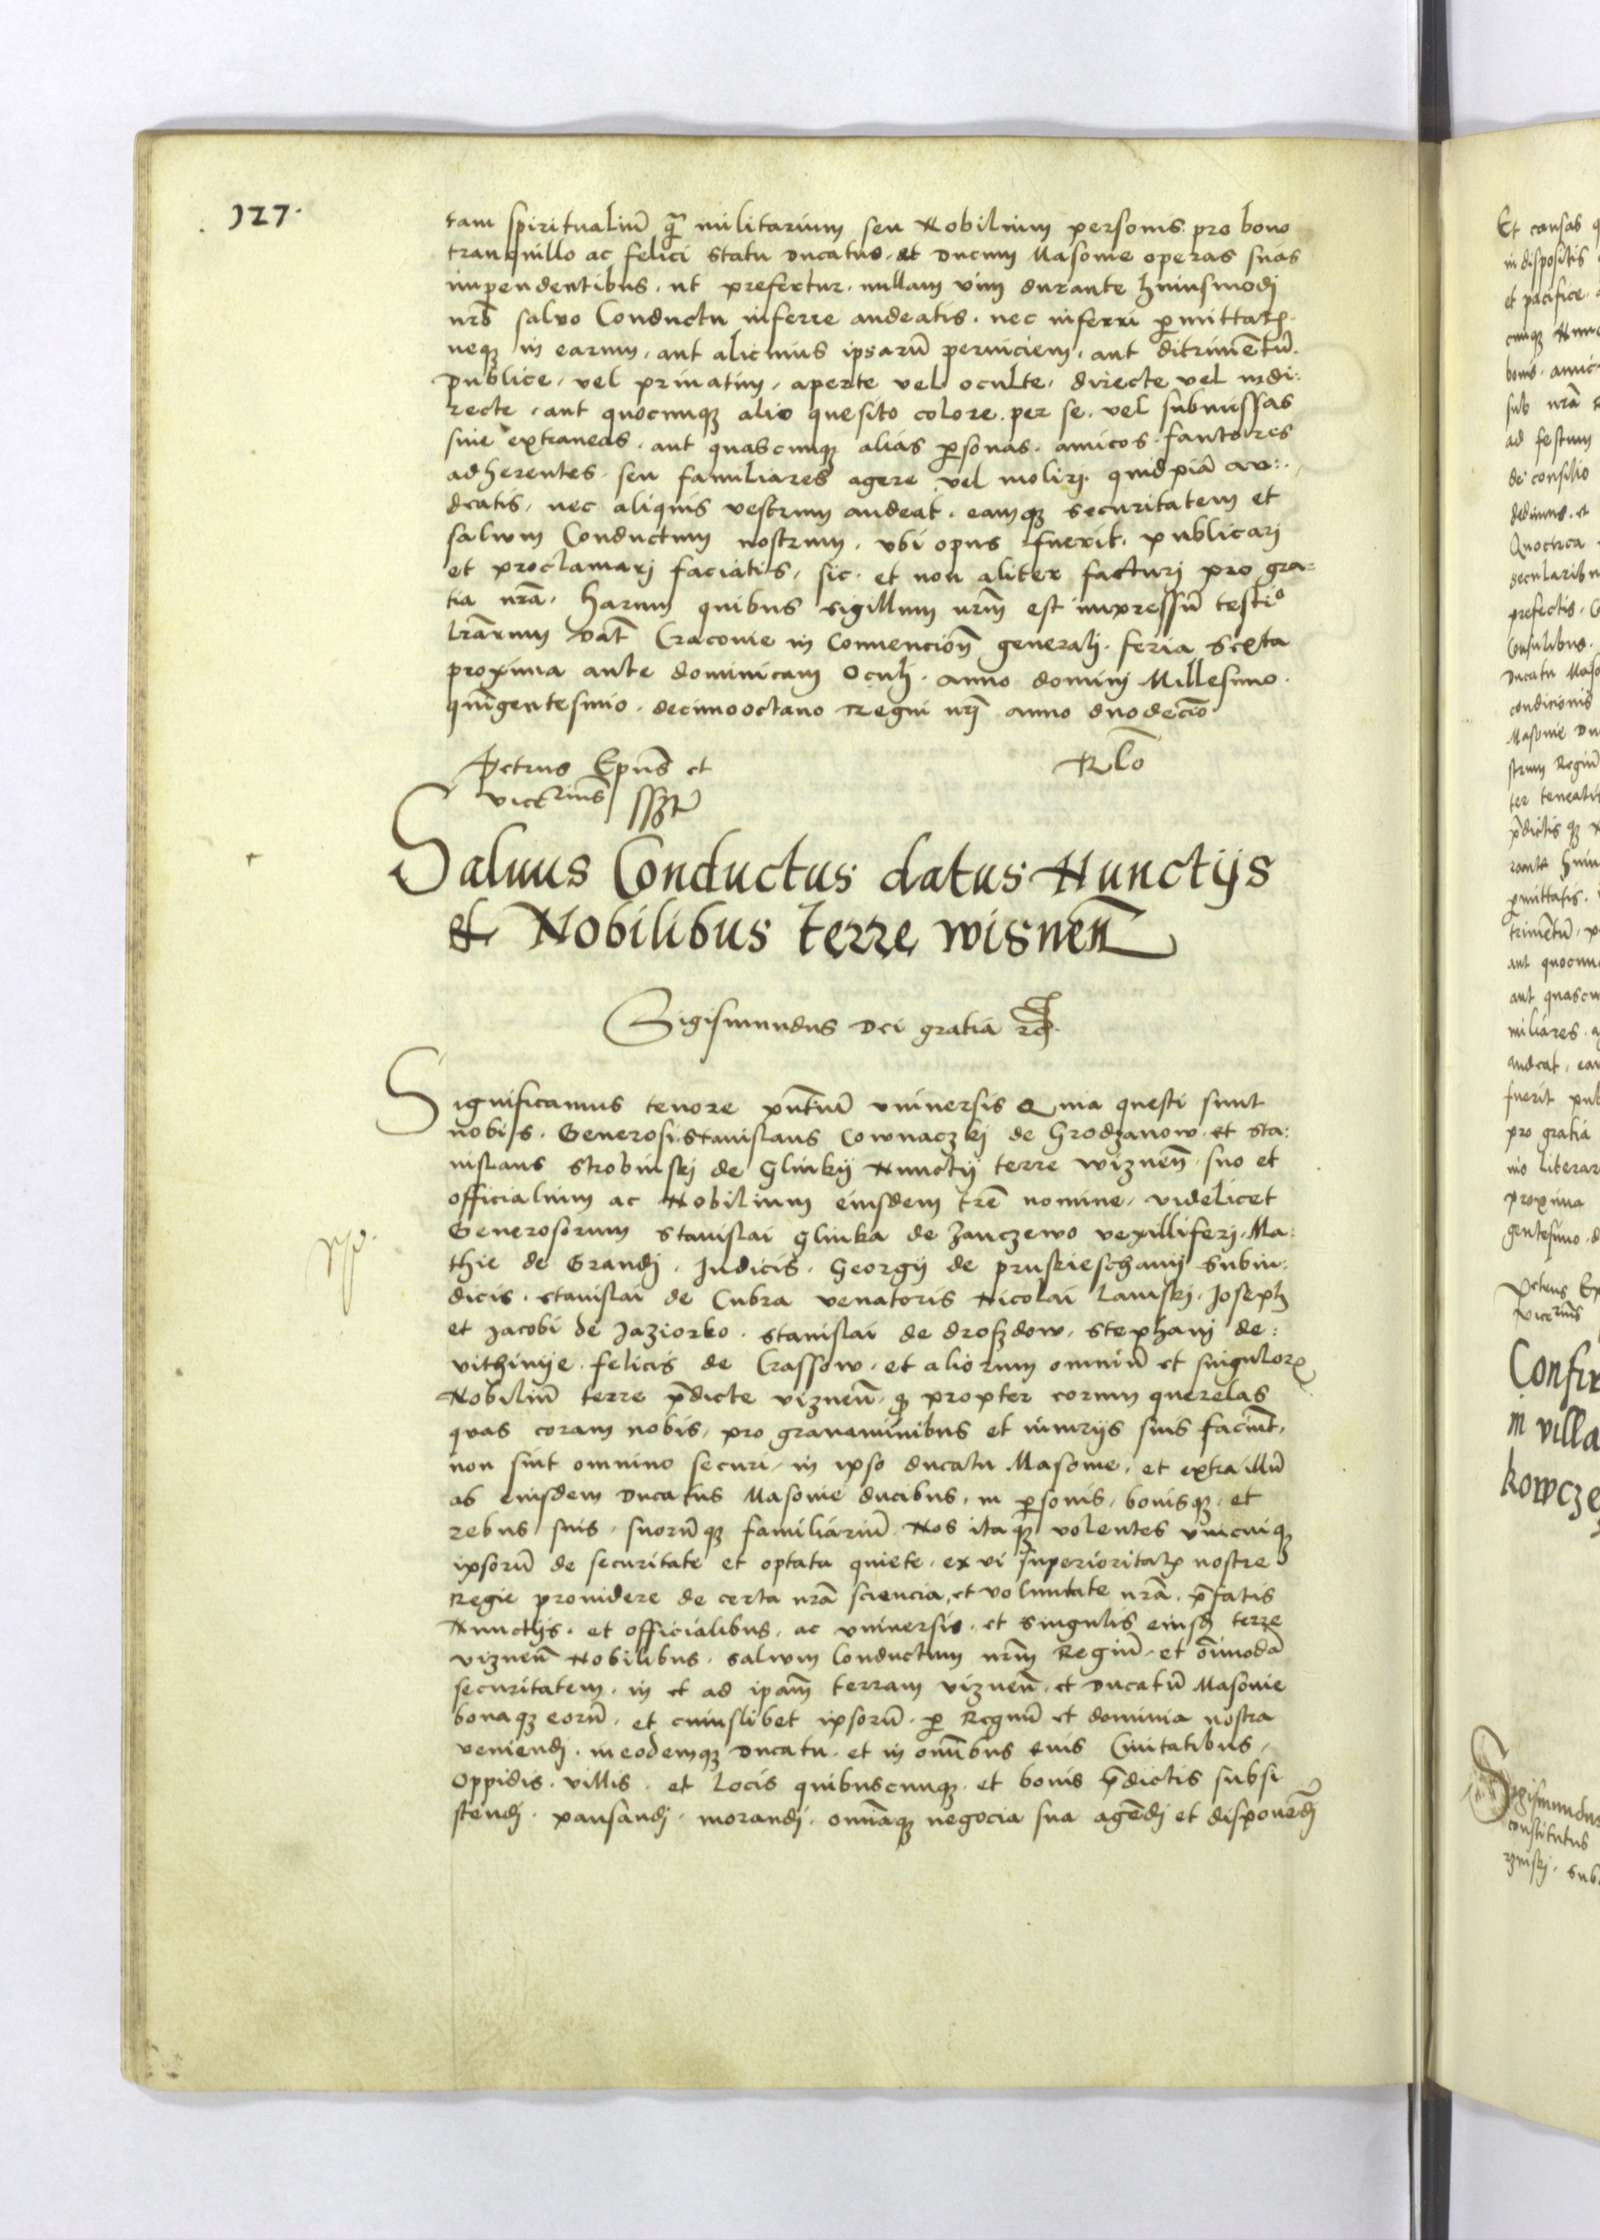 127.
tam spiritualiū q̄ militarium seu Nobilium personis pro bono
tranquillo ac felici statu ducatus et ducum Masovie operas suas
impendentibus, ut prefertur, nullam vim durante huiusmodj
nrō salvo Conductu inferre audeatis, nec inferri pmittatis
neq3 in earum, aut alicuius ipsarū perniciem, aut ditrimētū
publice, vel privatim, aperte vel oculte, directe vel indi:
recte, aut quocumq3 alio quesito colore per se, vel submissas
sive extraneas, aut quascumq3 alias psonas, amicos, fautores
adherentes, seu familiares agere vel molirj quidpiā au:
deatis, nec aliquis vestrum audeat, eamq3 securitatem et
salvum Conductum nostrum, ubi opus fuerit, publicarj
et proclamarj faciatis, sic et non aliter facturj pro gra=
tia nrā, harum quibus sigillum nrm̄ est impressū testio
lrārum Dat̄ Cracovie in Convencion̄ generalj feria sexta
proxima ante dominicam Oculj anno dominj Millesimo
quīgentesimo decimooctavo Regni nrj̄ anno duodecīo
Petrus Epūs et
vicecarius sszt
Rlō
Salvus Conductus datus Nunctijs
et Nobilibus terre wisnen̄
Sigismundus Dei gratia rex
Significamus tenore pn̄tiū universis Quia questi sunt
nobis Generosi Stanislaus Cownaczkj de Grodzanow et Sta:
nislaus Strobinskj de Glinkij Nunctij terre wiznen̄ suo et
officialium ac Nobilium eiusdem trē nomine, videlicet
Generosorum Stanislai Glinka de Janczewo vexilliferj, Ma:
thie de Grandj Iudicis, Georgij de pruskieschanij Subiu:
dicis, Stanislai de Cubra venatoris Nicolai Lamskj, Joseph
et Jacobi de Jaziorko, Stanislai de droszdow, Stephanj de:
vithinije, felicis de Crassow, et aliorum omniū et singulorx
Nobiliū terre p̄dicte vizneñ, q propter eorum querelas
quas coram nobis, pro gravaminibus et iniurijs suis faciūt,
non sint omnino securi, in ipso ducatu Masovie, et extra illū
ab eiusdem Ducatus Masovie ducibus, in psonis, bonisq3, et
rebus suis, suorūq3 familiariū Nos itaq3 volentes unicuiq3
ipsorū de securitate et optata quiete, ex vi superioritatis nostre
Regie providere de certa nrā sciencia, et voluntate nrā, p̄fatis
Nunctijs, et officialibus, ac universis, et singulis eiusd terre
vizneñ Nobilibus, salvum Conductum nrm̄ Regiū, et oīmodā
securitatem, in et ad ipam̄ terram vizneñ, et Ducatū Masovie
bonaq3 eorū, et cuiuslibet ipsorū, p Regnū et dominia nostra
veniendj, in eodemq3 Ducatu, et in omībus suis Civitatibus,
Oppidis, villis, et Locis quibuscumq3, et bonis p̄dictis subsi
stendj, pausandj, morandj, omīaq3 negocia sua agēdj et disponēdj
Et causas
indispositis
et pacifice
cumq3 Nunc
bonis, amic
sub nrā
ad festum
de consilio
dedimus, et
Quocirca
secularibu
prefectis,
Consulibus
Ducatu Maso
condicionis
Masovie Du
strum Regiū
ter teneati
p̄dictis q3
rante huiu
pmittatis,
trimētū, p
aut quocum
aut quascu
miliares,
audeat, ea
fuerit pub
pro gratia
nio literar
proxima
gentesimo, d
Petrus Ep
Confir
in villa
kowcze
Sigismundus
constitutus